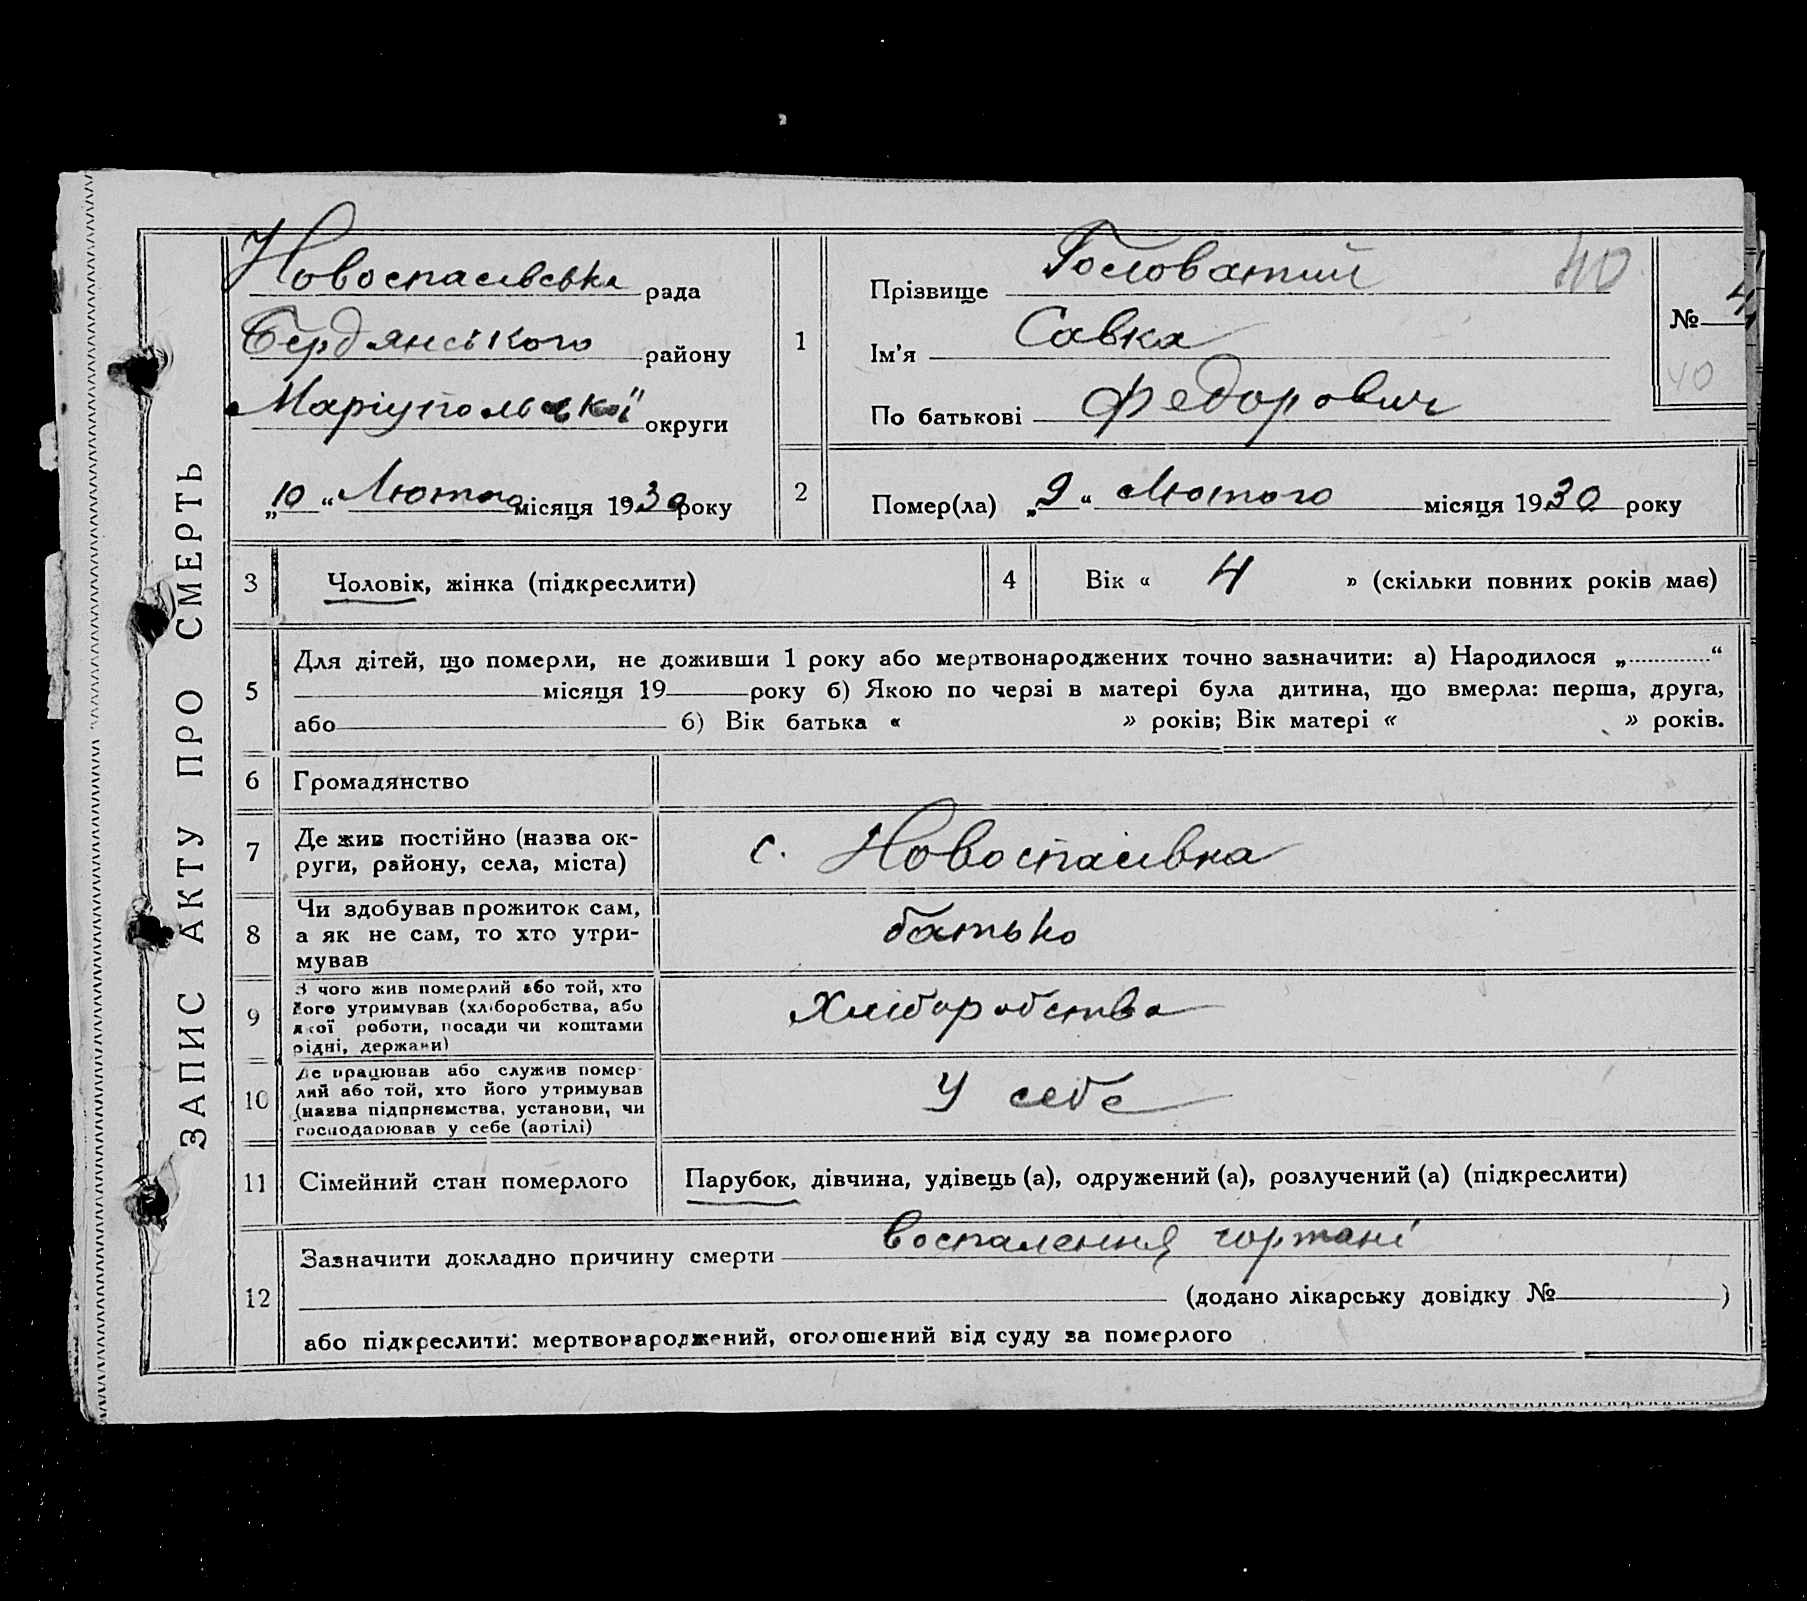 ЗАПИС АКТУ ПРО СМЕРТЬ
Новоспасівська рада
Бердянського району
Маріупольської округи
„10“ Лютого місяця 1930 року
1
Прізвище Головатий 40
Ім’я Савка
По батькові Федорович
№ 4
40
2
Помер(ла) „9“ Лютого місяця 1930 року
3 Чоловік, жінка (підкреслити)
4 Вік « 4 » (скільки повних років має)
5 Для дітей, що померли, не доживши 1 року або мертвонароджених точно зазначити: а) Народилося „............“
місяця 19 року б) Якою по черзі в матері була дитина, що вмерла: перша, друга,
або б) Вік батька « » років; Вік матері « » років.
6 Громадянство
7 Де жив постійно (назва ок-
руги, району, села, міста)
с. Новоспасівка
8 Чи здобував прожиток сам,
а як не сам, то хто утри-
мував
батько
9 З чого жив померлий або той, хто
його утримував (хліборобства, або
якої роботи, посади чи коштами
рідні, держави)
Хліборобства
10 Де працював або служив помер-
лий або той, хто його утримував
(назва підприємства, установи, чи
господарював у себе (артілі)
У себе
11 Сімейний стан померлого
Парубок, дівчина, удівець (а), одружений (а), розлучений (а) (підкреслити)
12 Зазначити докладно причину смерти воспалення гортані
(додано лікарську довідку № )
або підкреслити: мертвонароджений, оголошений від суду за померлого